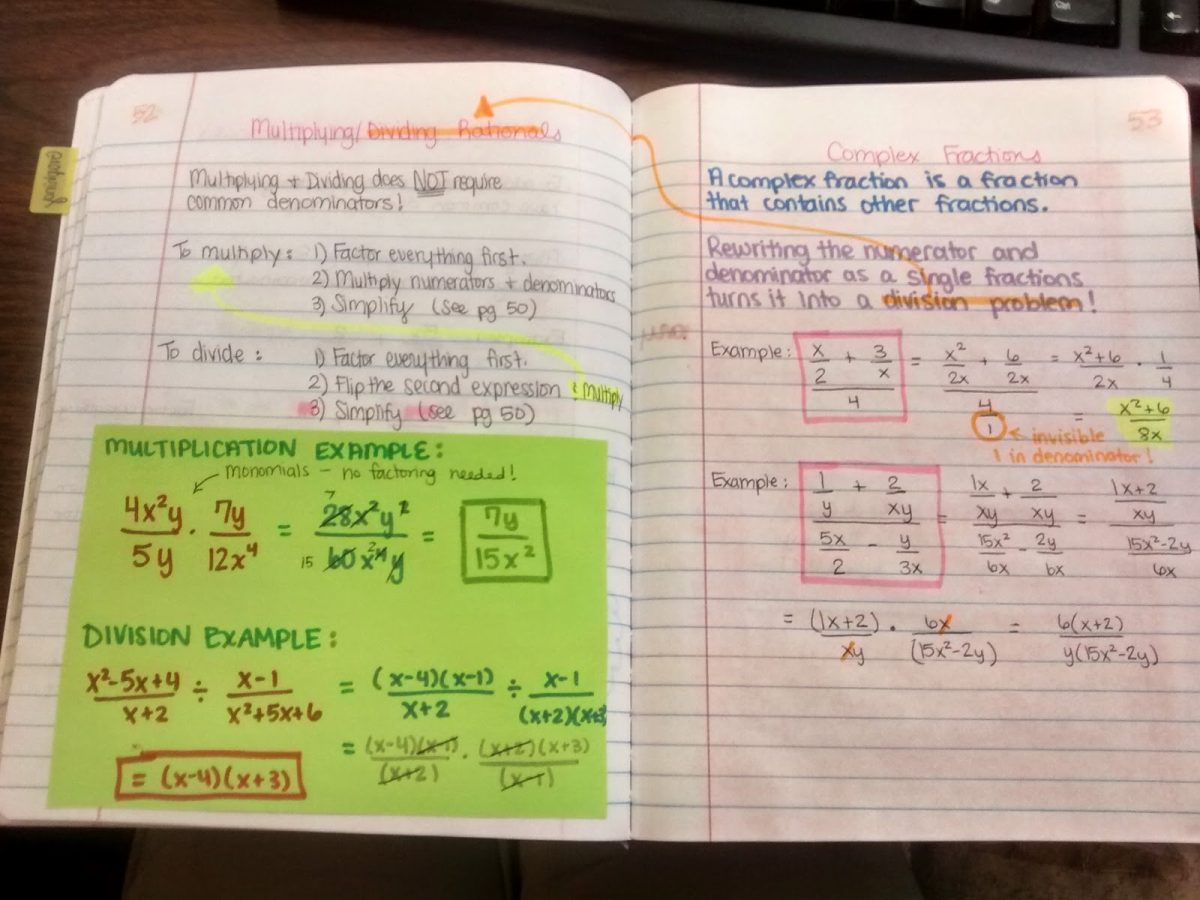 52
Multiplying/Dividing Rationals
Multiplying + Dividing does NOT require
common denominators!
To multiply: 1) Factor everything first.
2) Multiply numerators + denominators
3) Simplify (see pg 50)
To divide: 1) Factor everything first.
2) Flip the second expression & Multiply
3) Simplify (see pg 50)
MULTIPLICATION EXAMPLE:
monomials - no factoring needed!
4x²y/5y · 7y/12x⁴ = 7 28x²y²/15 60x⁴y = 7y/15x²
DIVISION EXAMPLE:
x²-5x+4/x+2 ÷ x-1/x²+5x+6 = (x-4)(x-1)/x+2 ÷ x-1/(x+2)(x+3
= (x-4)(x-1)/(x+2) · (x+2)(x+3)/(x-1)
= (x-4)(x+3)
53
Complex Fractions
A complex fraction is a fraction
that contains other fractions.
Rewriting the numerator and
denominator as a single fractions
turns it into a division problem!
Example: (x/2 + 3/x)/4 = (x²/2x + 6/2x)/(4/1) = x²+6/2x · 1/4
= x²+6/8x
← invisible
1 in denominator!
Example: (1/y + 2/xy)/(5x/2 - y/3x) = (1x/xy + 2/xy)/(15x²/6x - 2y/6x) = (1x+2/xy)/(15x²-2y/6x)
= (1x+2)/xy · 6x/(15x²-2y) = 6(x+2)/y(15x²-2y)